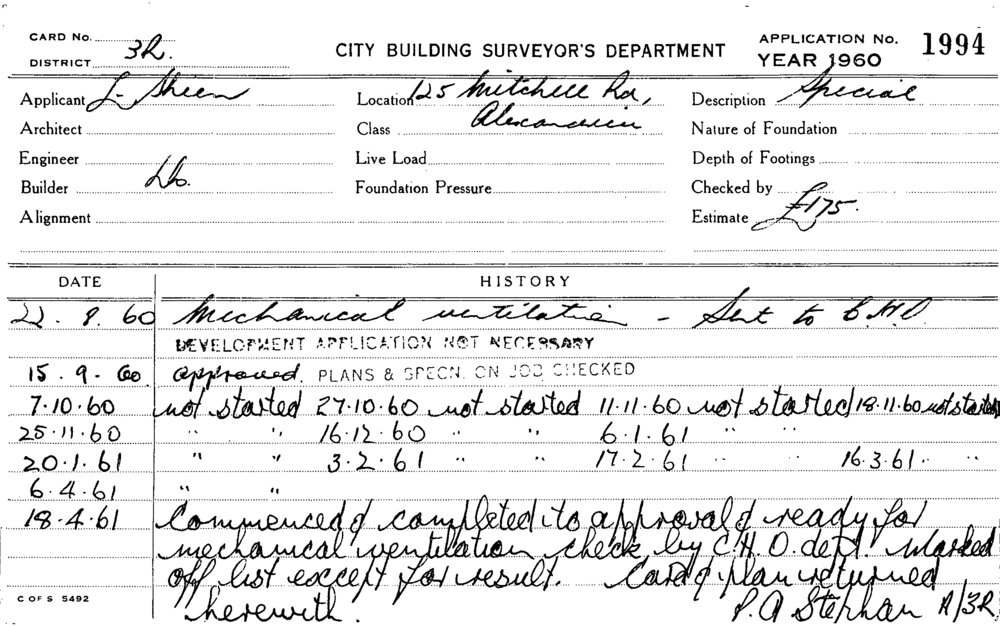 CARD No. 3R.
DISTRICT
CITY BUILDING SURVEYOR'S DEPARTMENT
APPLICATION No. 1994
YEAR 1960
Applicant L. Sheen
Location 125 Mitchell Rd,
Alexandria
Description Special
Architect
Class
Nature of Foundation
Engineer
Live Load
Depth of Footings
Builder Do.
Foundation Pressure
Checked by
Alignment
Estimate £175.
DATE HISTORY
22. 8. 60 Mechanical ventilation - Sent to C.H.O.
DEVELOPMENT APPLICATION NOT NECESSARY
15. 9. 60. approved. PLANS & SPECN. ON JOB CHECKED
7.10.60 not started 27.10.60 not started 11.11.60 not started 18.11.60 not started
25.11.60 " " 16.12.60 " " 6.1.61 " "
20.1.61 " " 3.2.61 " " 17.2.61 " " 16.3.61 " "
6.4.61 " "
18.4.61 Commenced & completed to approval & ready for
mechanical ventilation check by C.H.O. dept. Marked
off list except for result. Card & plan returned
herewith. P. A Stephan A/3R
C OF S 5492